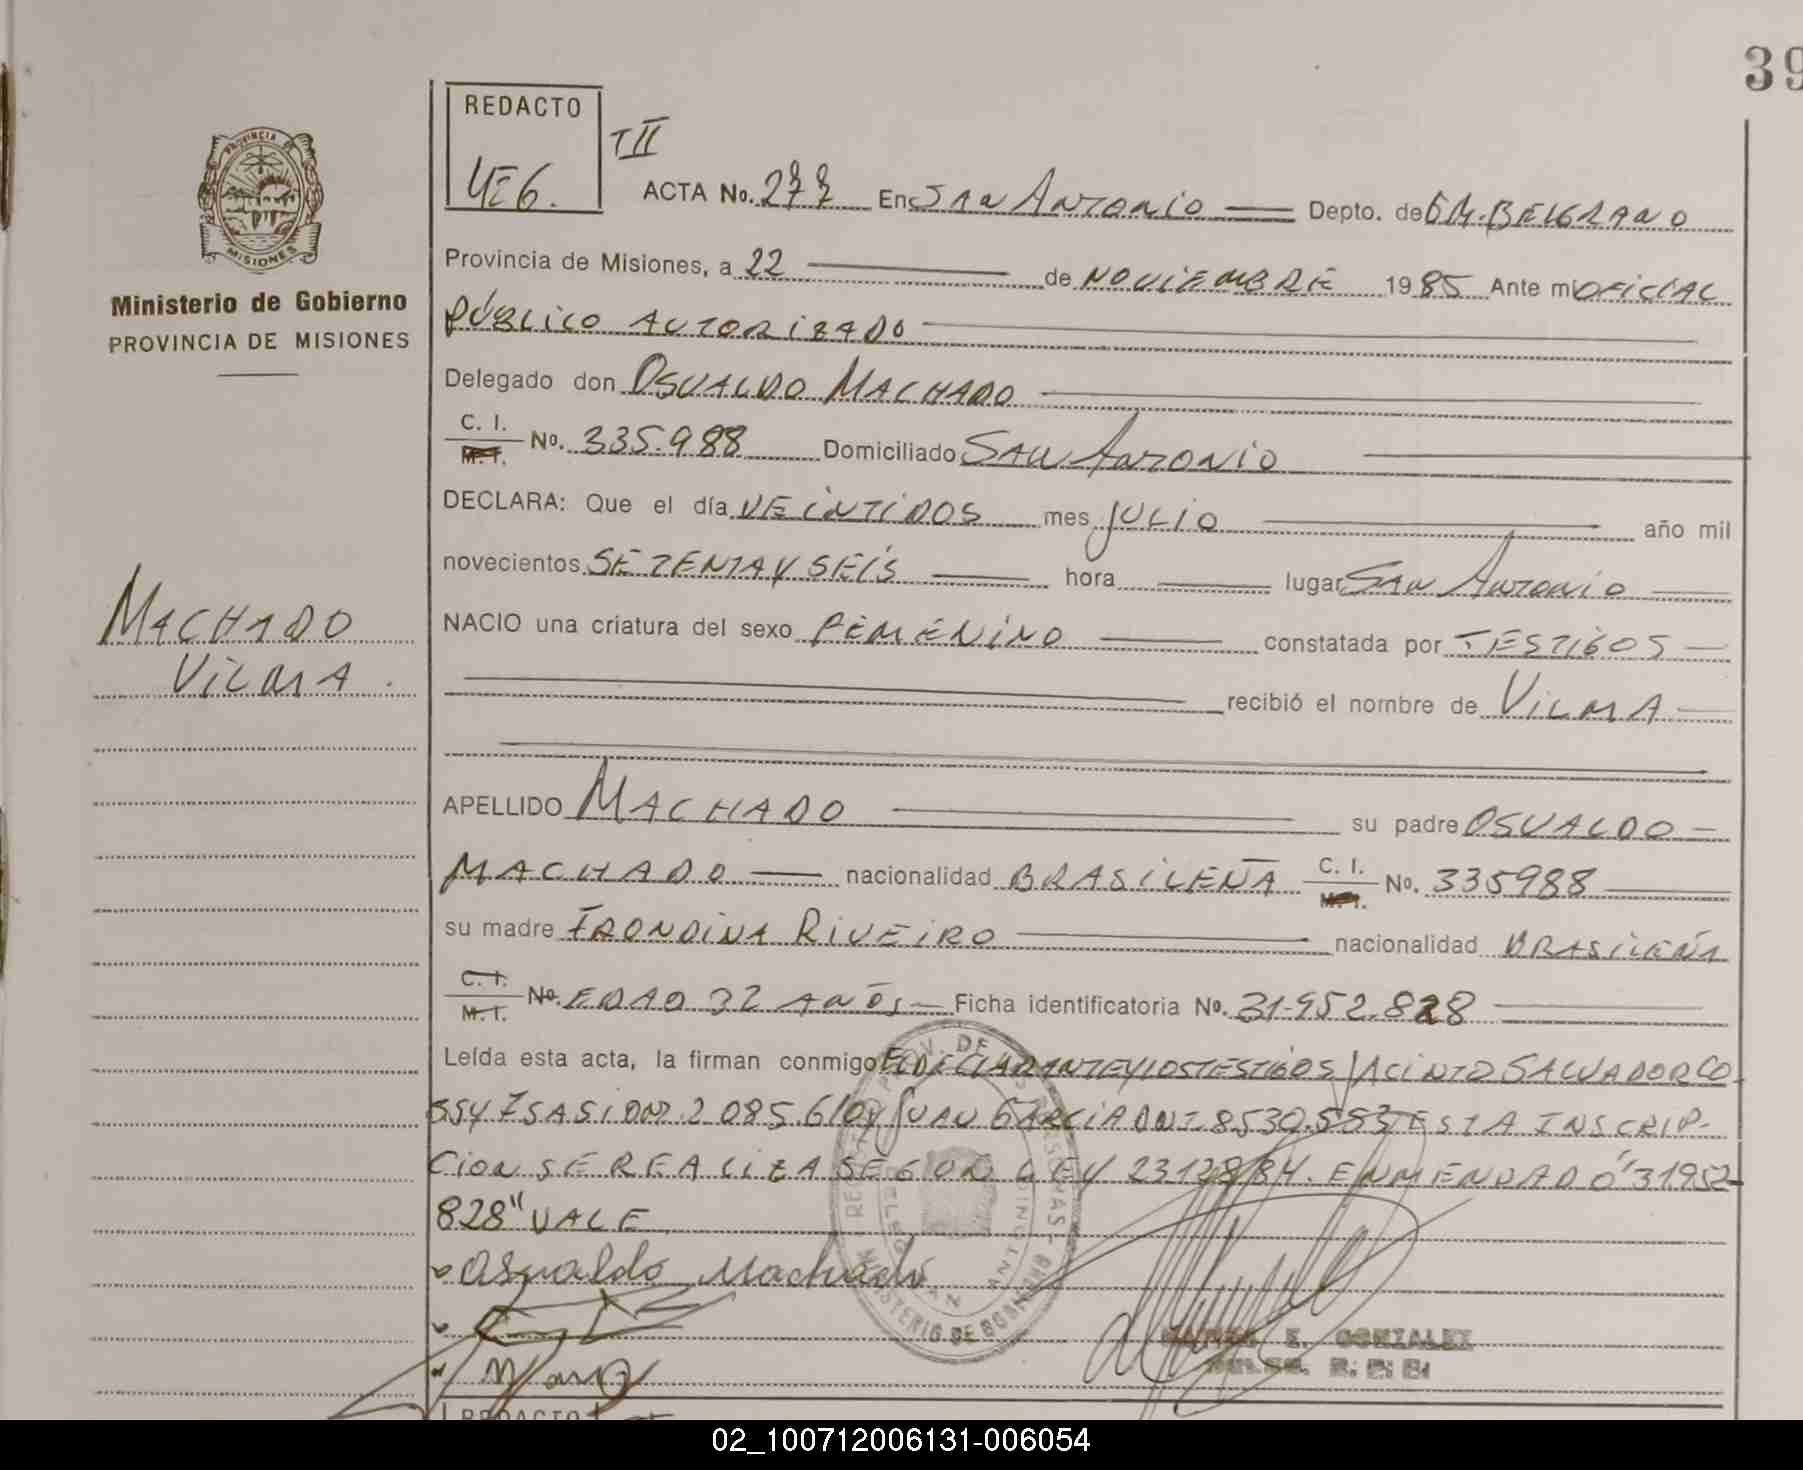 39
REDACTO
T II
ACTA No. 277 En SAN ANTONIO Depto. de GM. BELGRANO
PROVINCIA DE
MISIONES
Provincia de Misiones, a 22 de NOVIEMBRE 1985 Ante mi OFICIAL
Ministerio de Gobierno
PROVINCIA DE MISIONES
PÚBLICO AUTORIZADO
Delegado don OSVALDO MACHADO
C. I.
M. I.
No. 335.988 Domiciliado SAN ANTONIO
DECLARA: Que el día VEINTIDOS mes JULIO año mil
novecientos SETENTA Y SEIS hora lugar SAN ANTONIO
MACHADO
VILMA.
NACIO una criatura del sexo FEMENINO constatada por TESTIGOS
recibió el nombre de VILMA
APELLIDO MACHADO su padre OSVALDO
MACHADO nacionalidad BRASILEÑA C. I. M. I. No. 335988
su madre IRONDINA RIVEIRO nacionalidad BRASILEÑA
C. I. M. I. No. EDAD 32 AÑOS Ficha identificatoria No. 31.952.828
Leída esta acta, la firman conmigo EL DECLARANTE Y LOS TESTIGOS JACINTO SALVADOR CO
SSY ISASI DNI. 2.085.610 Y JUAN GARCIA DNI. 8530.553 ESTA INSCRIP-
CION SE REALIZA SEGUN LEY 23128/84. ENMENDADO "31952
828" VALE
Osvaldo Machado
E. GONZALEZ
02_100712006131-006054